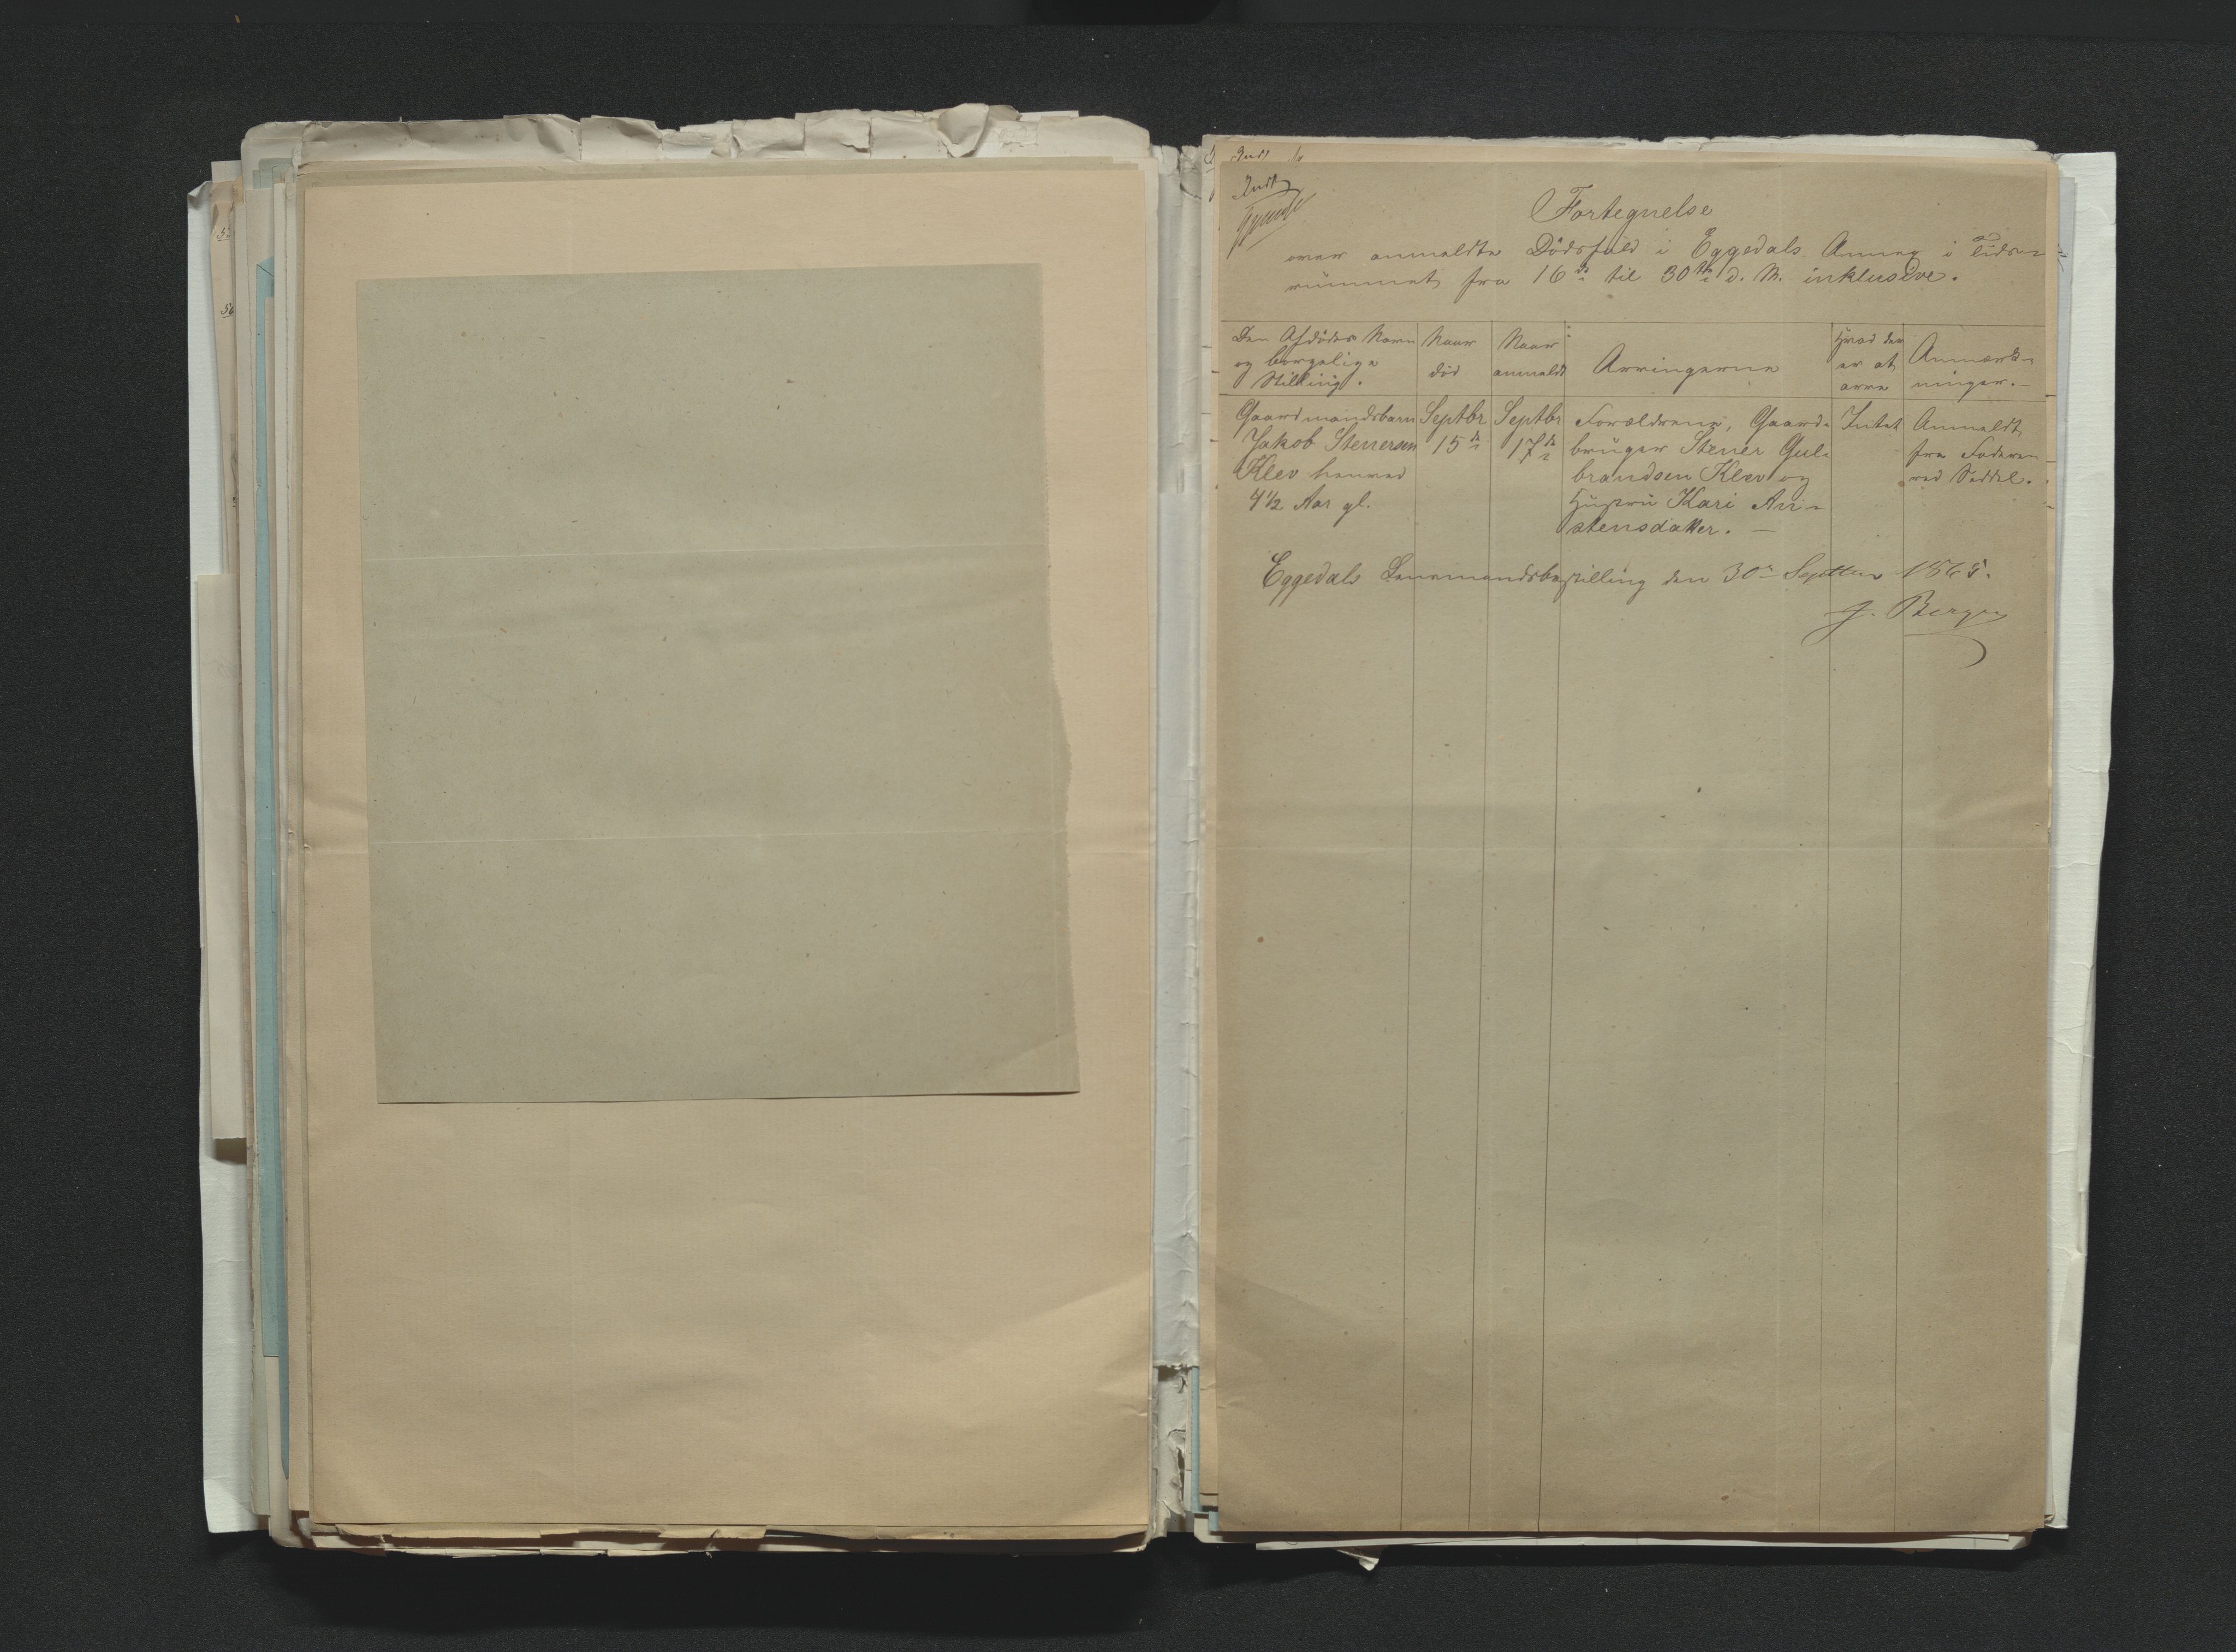 Indt
Fortegnelse
over anmeldte Dödsfald i Eggedals Annex i Tids-
rummet fra 16de til 30te d. M. inklusive.
Den Afdödes Navn og borgelige Stilling.
Naar död
Naar anmeldt
Arvingerne
Hvad der er at arve
Anmærk-
ninger.
Gaardmandsbarn
Jakob Stenersen
Klev henved
4½ Aar gl.
Septbr
15de
Septbr
17de
Forældrene, Gaard-
bruger Stener Gul-
brandsen Klev og
Hustru Kari An-
stensdatter. —
Intet
Anmeldt
fra Faderen
ved Seddel.
Eggedals Lensmandsbestilling den 30te Septbr 1865.
J. Bergan